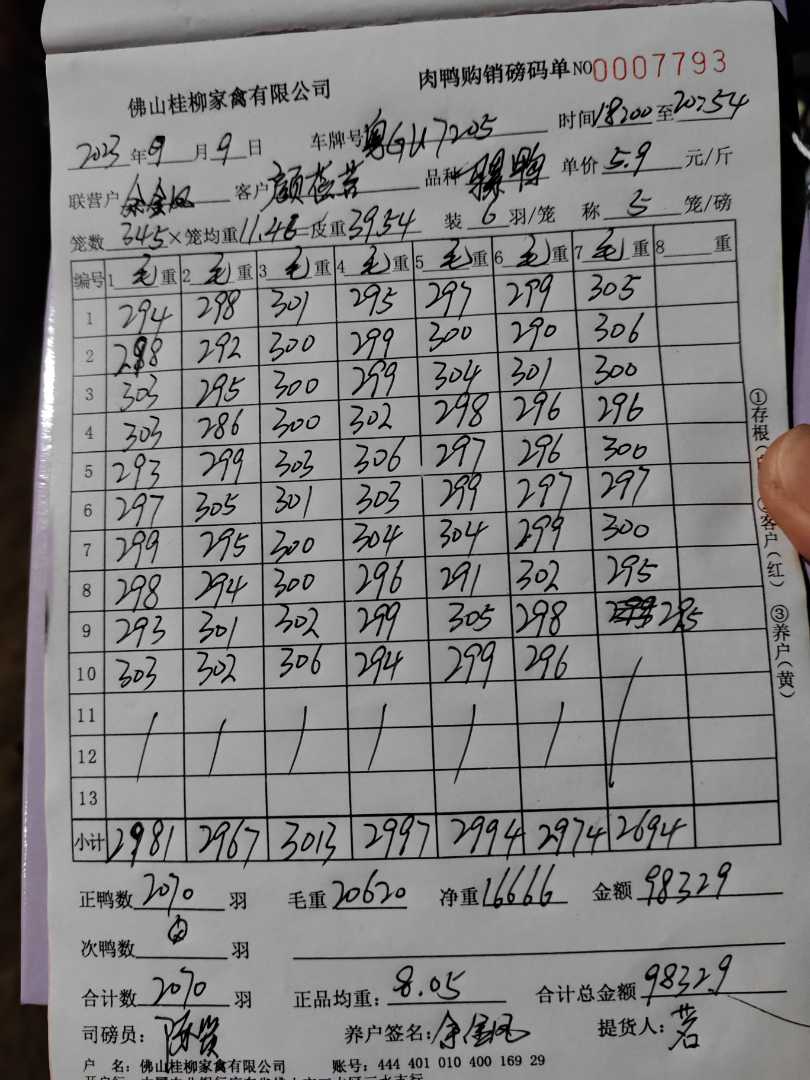 佛山桂柳家禽有限公司 肉鸭购销磅码单 NO0007793
2023年9月9日 车牌号粤GU7205 时间18:00至20:54
联营户余金风 客户颜 品种骡鸭 单价5.9元/斤
笼数345×笼均重11.46=皮重3954 装6羽/笼 称5笼/磅
编号 1毛重 2毛重 3毛重 4毛重 5毛重 6毛重 7毛重 8重
1 294 298 301 295 297 299 305
2 298 292 300 299 300 290 306
3 303 295 300 299 304 301 300
4 303 286 300 302 298 296 296
5 293 299 303 306 297 296 300
6 297 305 301 303 299 297 297
7 299 295 300 304 304 299 300
8 298 294 300 296 291 302 295
9 293 301 302 299 305 298 295
10 303 302 306 294 299 296
11
12
13
小计 2981 2967 3013 2997 2994 2974 2694
正鸭数2070羽 毛重20620 净重16666 金额98329
次鸭数0羽
合计数2070羽 正品均重:8.05 合计总金额98329
司磅员:陈贤 养户签名:余金风 提货人:苦
户 名:佛山桂柳家禽有限公司 账号:444 401 010 400 169 29
①存根( ②客户(红) ③养户(黄)